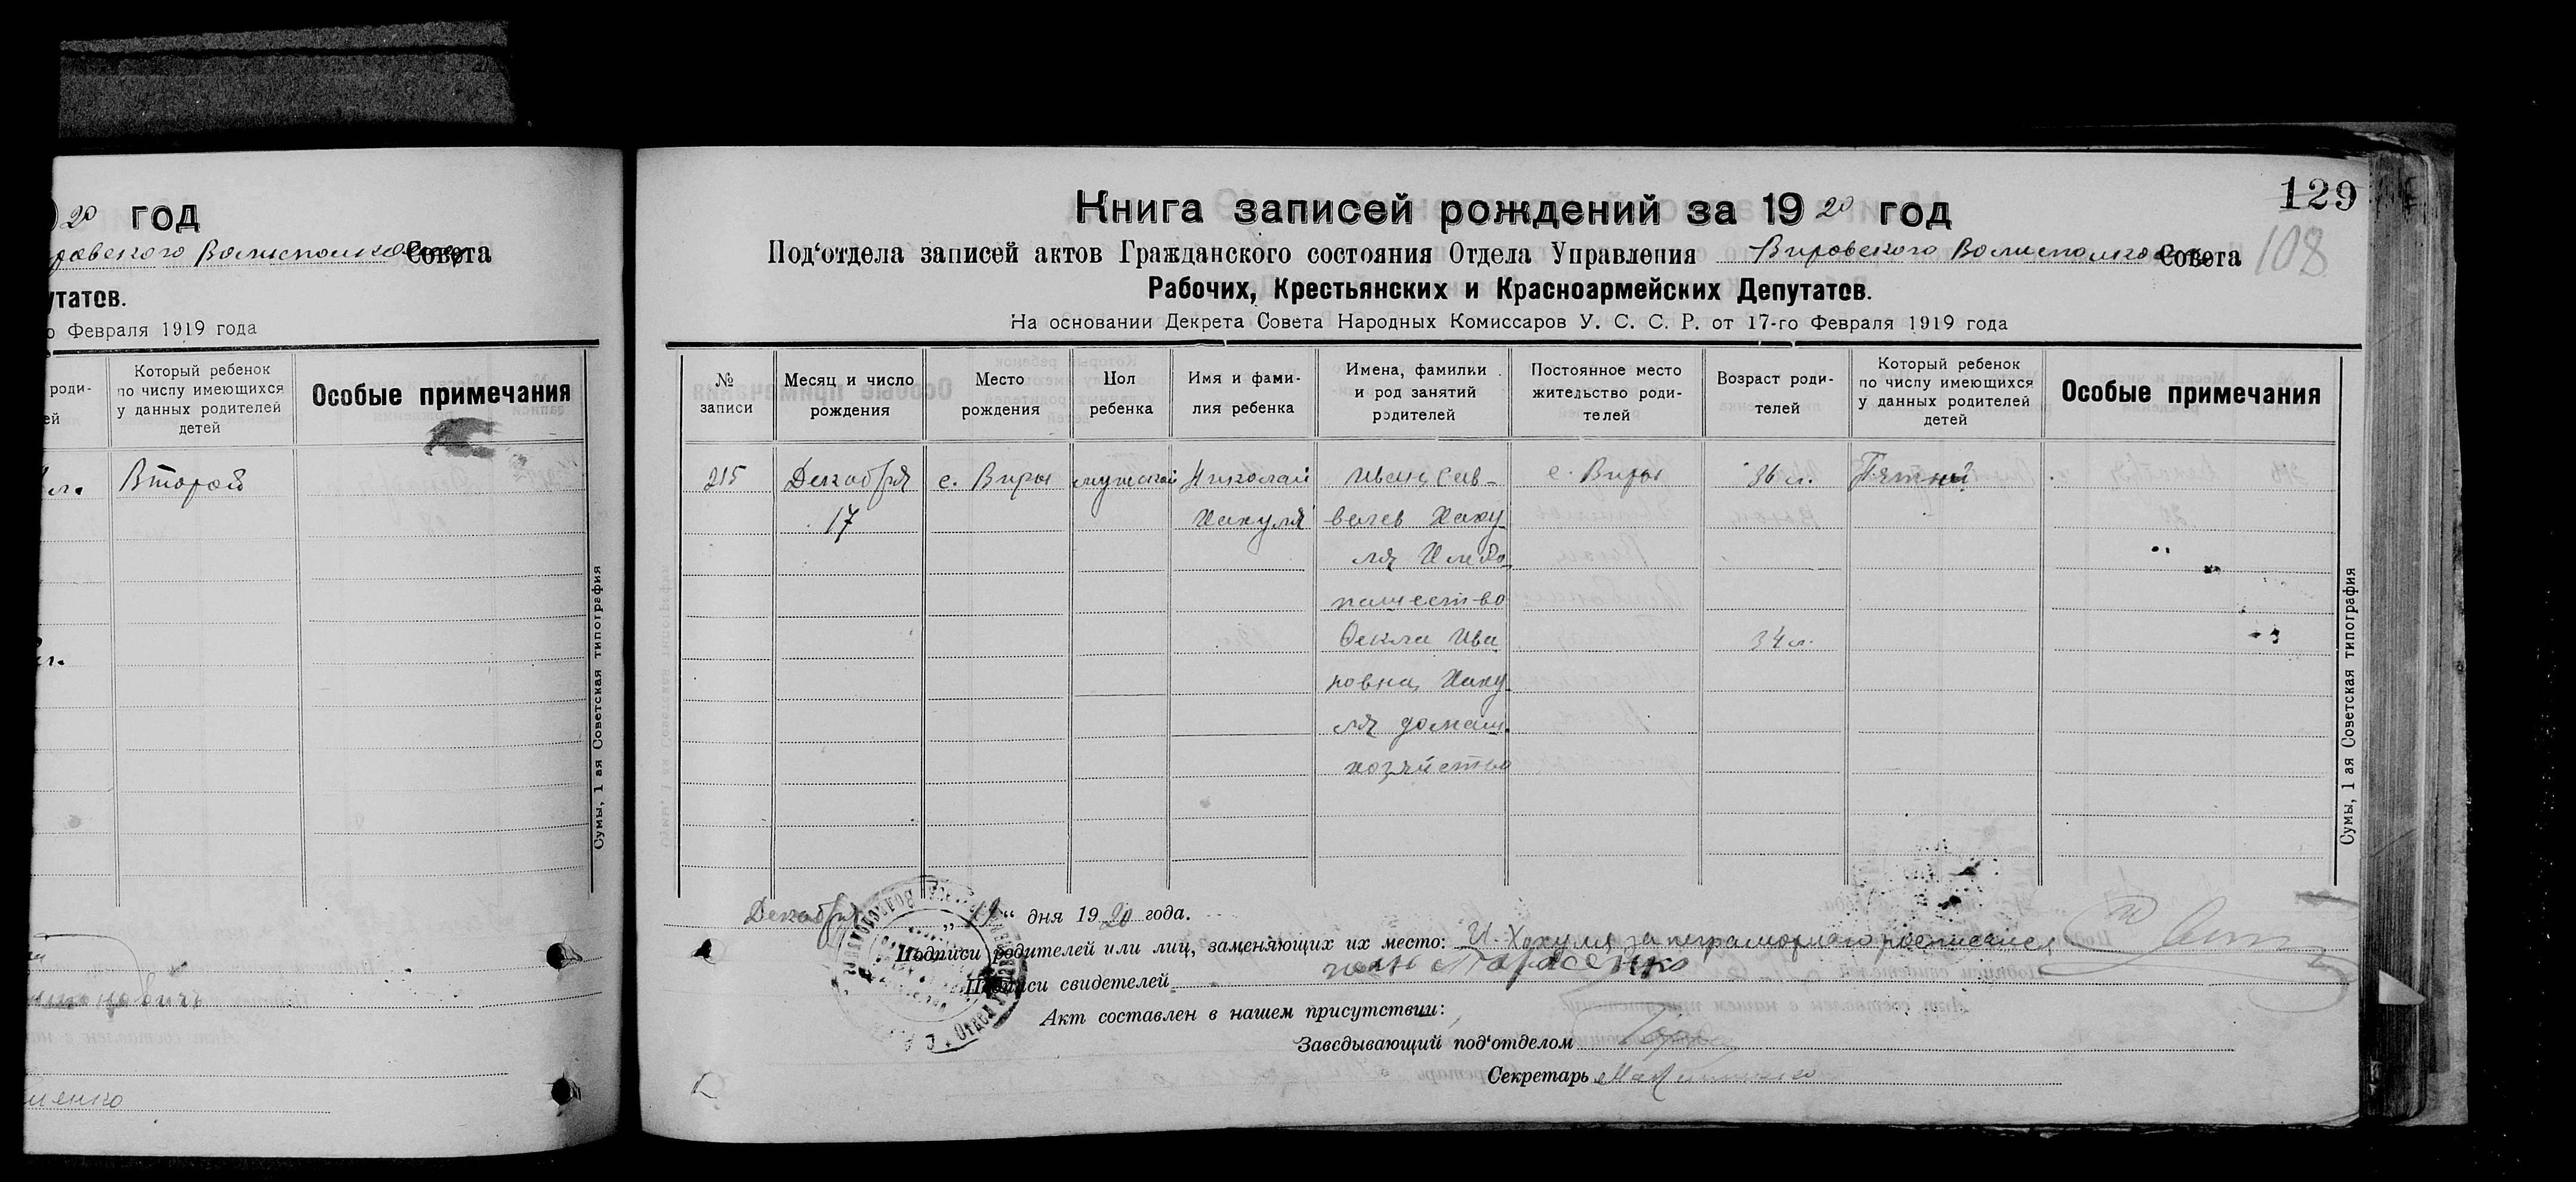 20 год
ровского Волисполкома Совета
утатов.
о Февраля 1919 года
роди-
ей
Который ребенок
по числу имеющихся
у данных родителей
детей
Особые примечания
л. Второй
Сумы, 1 ая Советская типография
129
108
Книга записей рождений за 1920 год
Под‘отдела записей актов Гражданского состояния Отдела Управления Вировского Волисполкома Совета
Рабочих, Крестьянских и Красноармейских Депутатов.
На основании Декрета Совета Народных Комиссаров У. С. С. Р. от 17-го Февраля 1919 года
№
записи
Месяц и число
рождения
Место
рождения
Пол
ребенка
Имя и фами-
лия ребенка
Имена, фамилии
и род занятий
родителей
Постоянное место
жительство роди-
телей
Возраст роди-
телей
Который ребенок
по числу имеющихся
у данных родителей
детей
Особые примечания
215 Декабря с. Виры мужской Николай Иван Сав- с. Виры 36 л. Пятый
17 Хахуля велев Хаху
ля Хлебо
пашество
Фекла Ива 34 л.
новна Хаху
ля домаш.
хозяйство
Сумы, 1 ая Советская типография
Декабря „19“ дня 1920 года.
Подписи родителей или лиц, заменяющих их место: И. Хахуля за неграмотного росписался
Тарасенко
Подписи свидетелей
Акт составлен в нашем присутствии:
Заведывающий под‘отделом
Секретарь